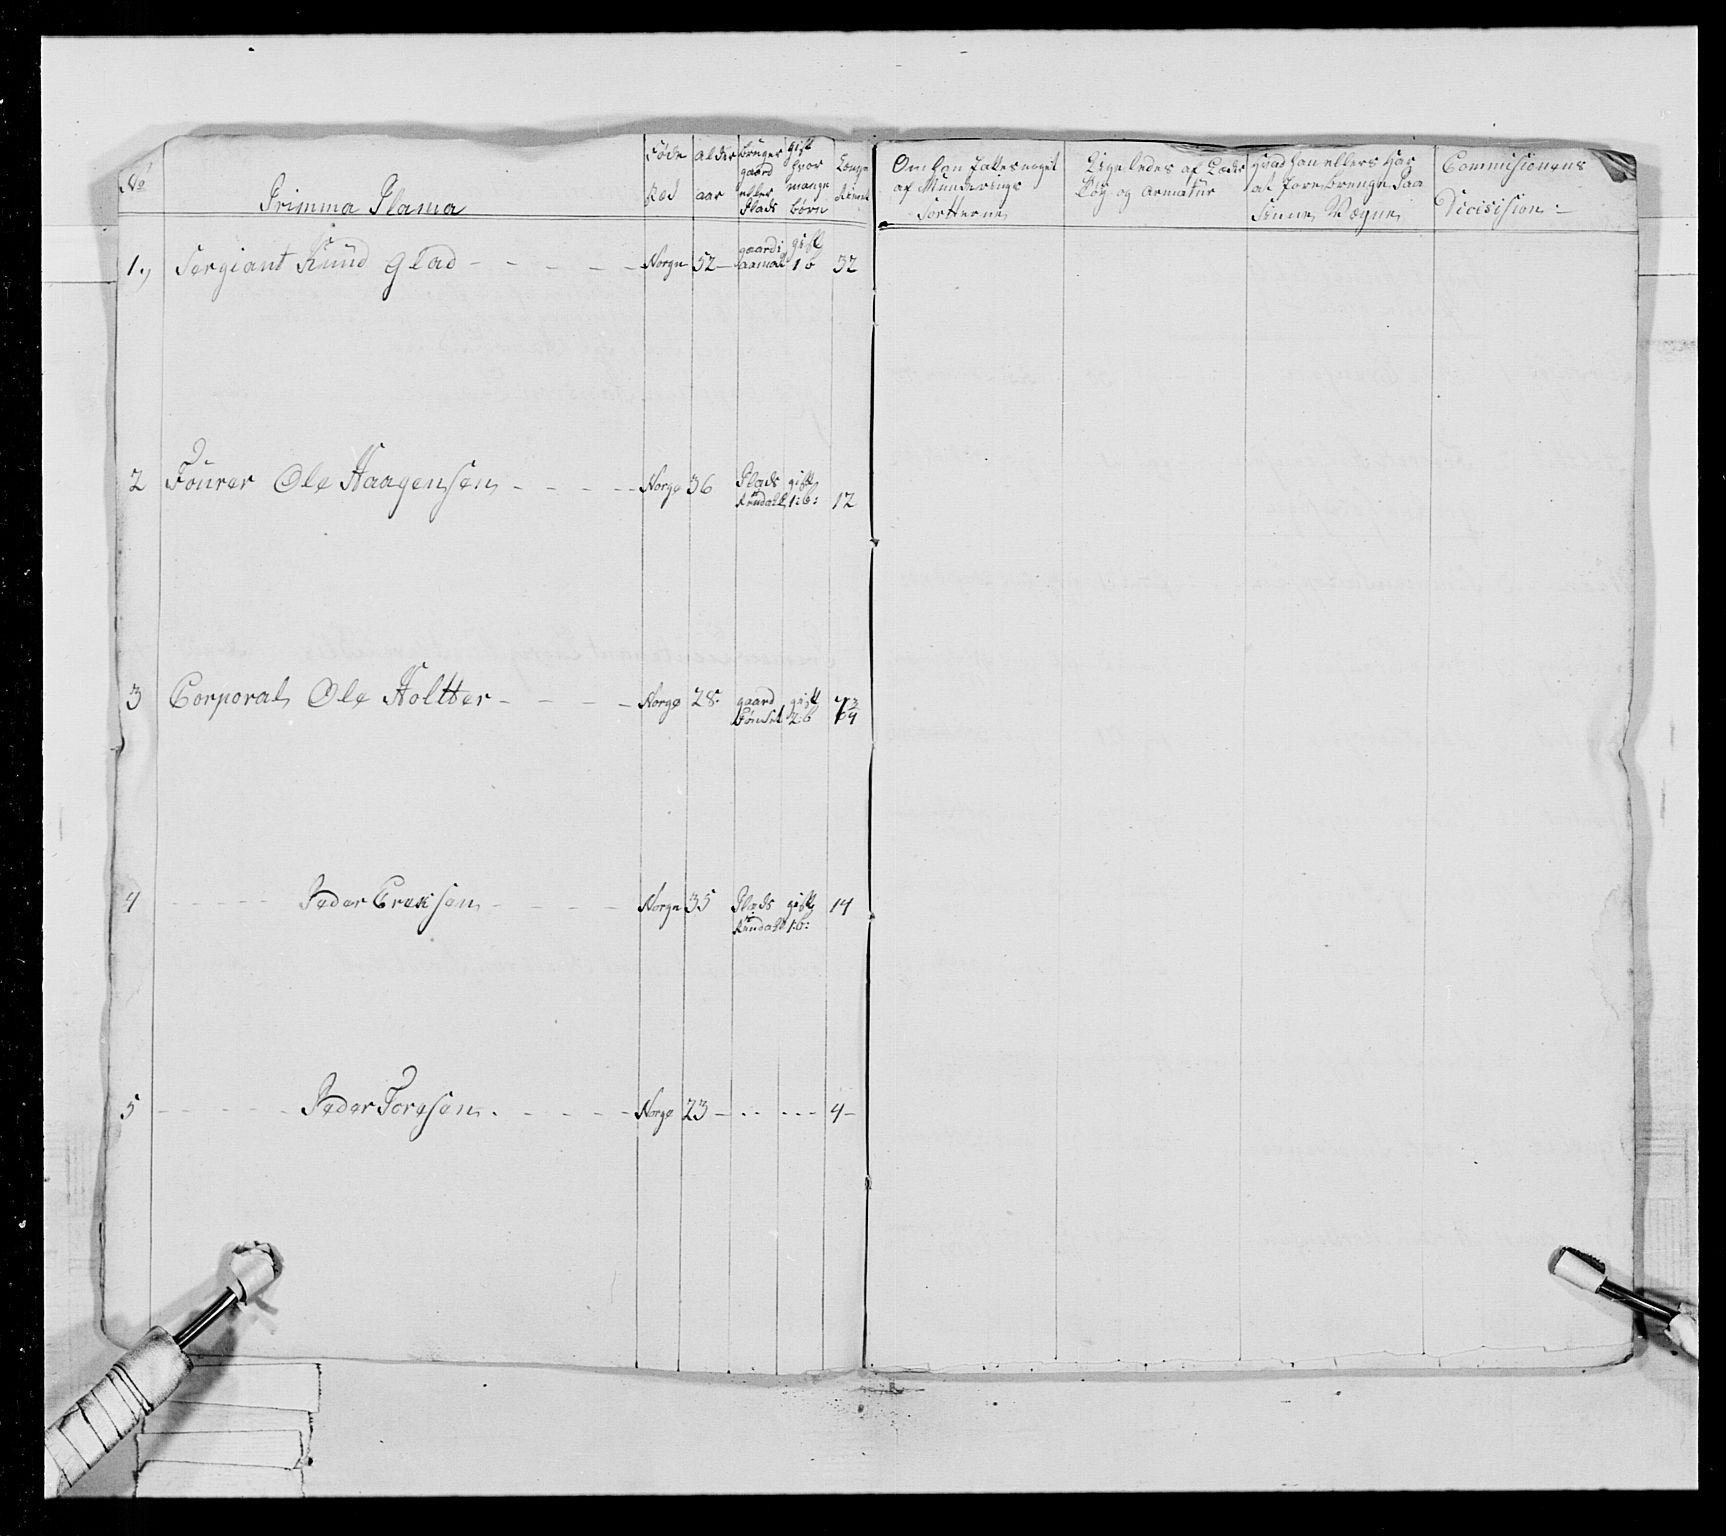 No
Primma Plama
Føde
Sted
alder
aar
bruger
gaard
eller
Plads
gift
hvor
mange
børn
Længe
tient
Om han fattes noget
af Munderings
Sortterne
Ligeledes af Læder
Tøy og Armatur
Hvad han ellers Har
at Forebrenge Paa
Sinne Vægne
Commisionens
Dicisision :
1. Sergiant Knud Glad - - - - - Norge 52 - gaard i aamot gift 1 b 32
2 Fourer Ole Haagensen - - - - Norge 36 Plads gift 1:b: 12
3 Corporal Ole Holtter - - - - Norge 28. gaard gift 2:b
4 - - - - - Peder Ereksen - - - - Norge 35 Plads gift 1:b: 14
5 - - - - - Peder Toresen - - - - - Norge 23 - - - - - - 4 -